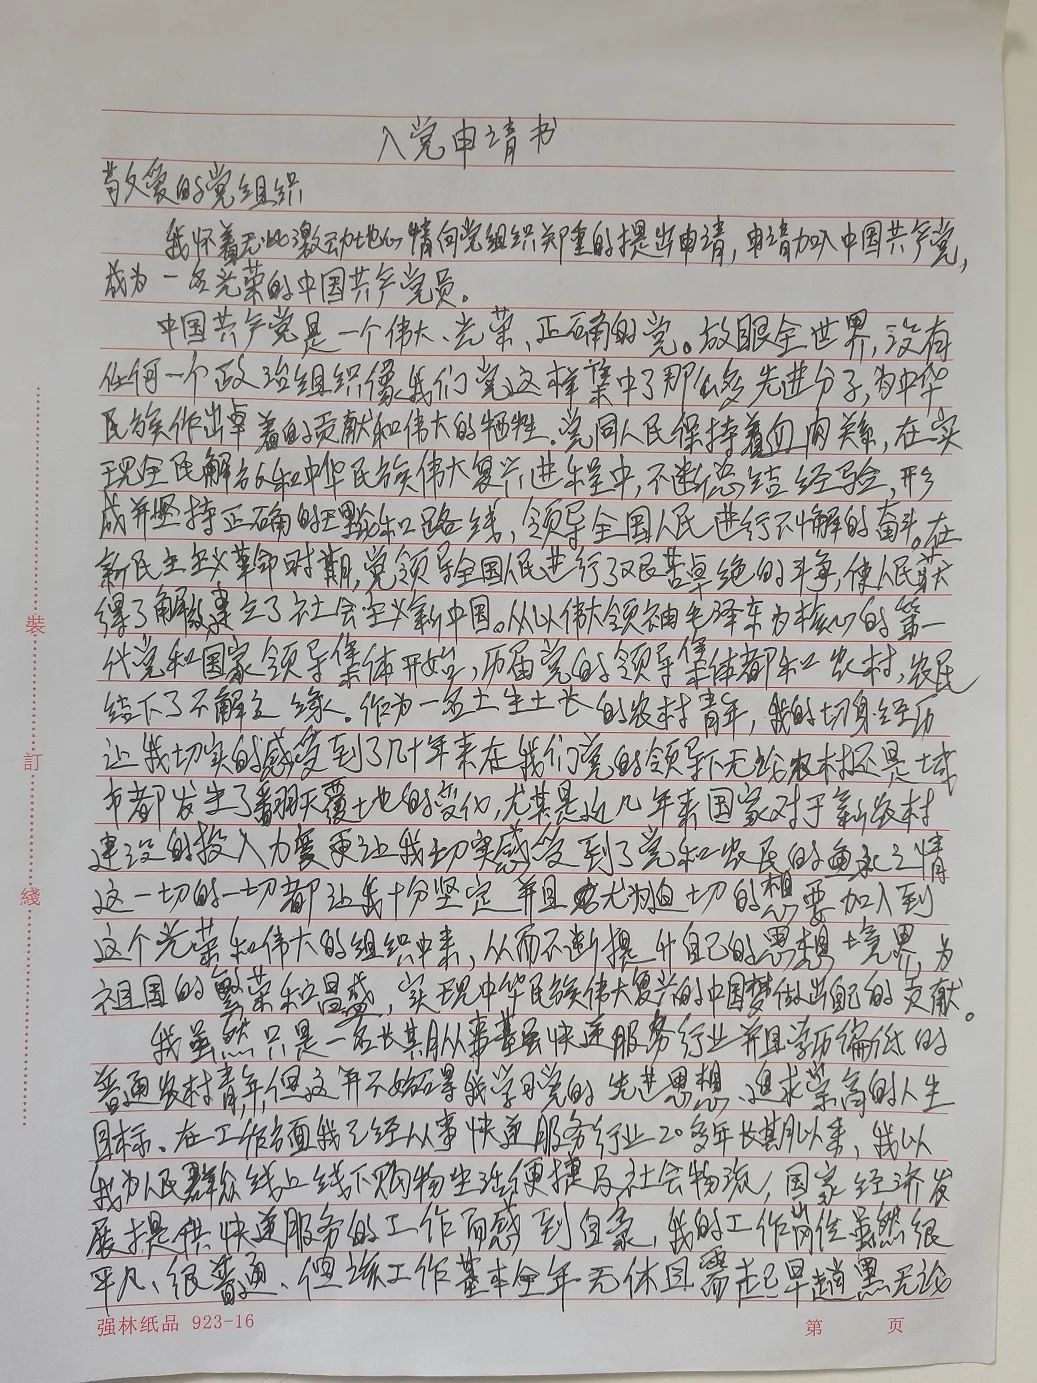 入党申请书
敬爱的党组织
我怀着无比激动地心情向党组织郑重的提出申请，申请加入中国共产党，
成为一名光荣的中国共产党员。
中国共产党是一个伟大、光荣、正确的党。放眼全世界，没有
任何一个政治组织像我们党这样集中了那么多先进分子，为中华
民族作出卓着的贡献和伟大的牺牲。党同人民保持着血肉关系，在实
现全民解放和中华民族伟大复兴进程中，不断总结经验，形
成并坚持正确的理论和路线，领导全国人民进行不懈的奋斗。在
新民主主义革命时期，党领导全国人民进行了艰苦卓绝的斗争，使人民获
得了解放建立了社会主义新中国。从以伟大领袖毛泽东为核心的第一
代党和国家领导集体开始，历届党的领导集体都和农村，农民
结下了不解之缘。作为一名土生土长的农村青年，我的切身经历
让我切实的感受到了几十年来在我们党的领导下无论农村还是城
市都发生了翻天覆地的变化，尤其是近几年来国家对于新农村
建设的投入力度更让我切实感受到了党和农民的鱼水之情
这一切的一切都让我十分坚定并且尤为迫切的想要加入到
这个光荣和伟大的组织中来，从而不断提升自己的思想境界，为
祖国的繁荣和昌盛，实现中华民族伟大复兴的中国梦做出自己的贡献。
我虽然只是一名长期从事基层快递服务行业并且学历偏低的
普通农村青年，但这并不妨碍我学习党的先进思想、追求崇高的人生
目标。在工作方面我已经从事快递服务行业20多年长期以来，我以
我为人民群众线上线下购物生活便捷及社会物流，国家经济发
展提供快递服务的工作而感到自豪，我的工作岗位虽然很
平凡、很普通、但该工作基本全年无休且需起早趟黑无论
强林纸品 923-16
第 页
裝
訂
綫